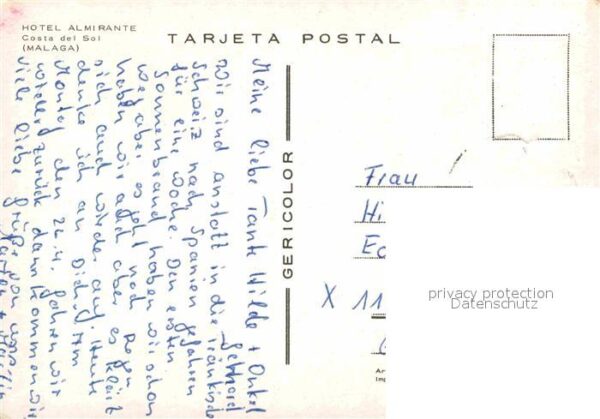 HOTEL ALMIRANTE
Costa del Sol
(MALAGA)
TARJETA POSTAL
GERICOLOR
Meine liebe Tante Hilde + Onkel
Gebhard
Wir sind anstatt in die Fränkische
Schweiz nach Spanien gefahren
für eine Woche. Den ersten
Sonnenbrand haben wir schon
weg aber es geht noch. Regen
haben wir auch aber es klärt
sich auch wieder auf. Heute
denke ich an Dich. Am
Montag den 24.4. fahren wir
wieder zurück dann kommen wir
viele liebe Grüße von
Frau
Hi
Ec
X 11
privacy protection
Datenschutz
Ar
Imp